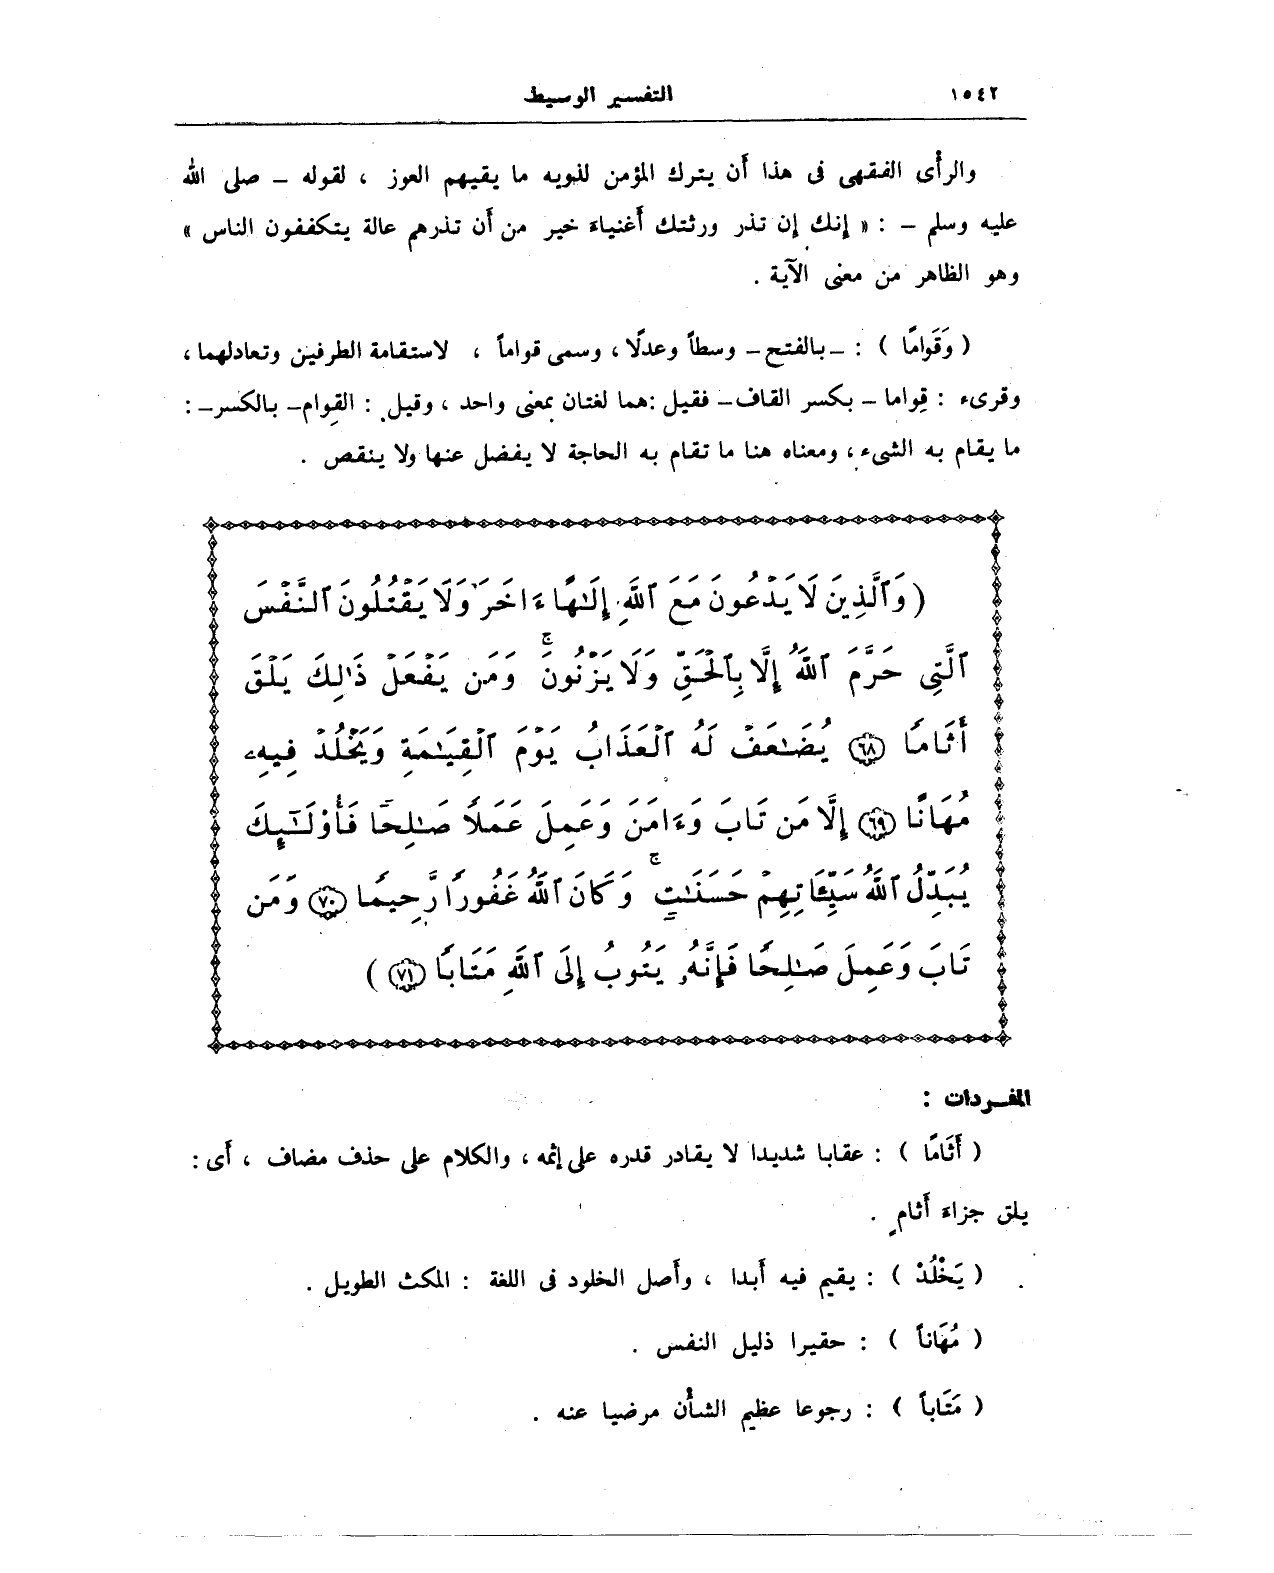 ١٥٤٢ التفسير الوسيط
والرأى الفقهى فى هذا أن يترك المؤمن لذويه ما يقيهم العوز ، لقوله – صلى الله
عليه وسلم – : « إنك إن تذر ورثتك أغنياء خير من أن تذرهم عالة يتكففون الناس »
وهو الظاهر من معنى الآية .
( وَقَوامًا ) : – بالفتح – وسطاً وعدلًا ، وسمى قواماً ، لاستقامة الطرفين وتعادلهما ،
وقرىء : قِواما – بكسر القاف – فقيل : هما لغتان بمعنى واحد ، وقيل : القِوام – بالكسر – :
ما يقام به الشىء ، ومعناه هنا ما تقام به الحاجة لا يفضل عنها ولا ينقص .
( وَٱلَّذِينَ لَا يَدْعُونَ مَعَ ٱللَّهِ إِلَـٰهًا ءَاخَرَ وَلَا يَقْتُلُونَ ٱلنَّفْسَ
ٱلَّتِى حَرَّمَ ٱللَّهُ إِلَّا بِٱلْحَقِّ وَلَا يَزْنُونَ ۚ وَمَن يَفْعَلْ ذَٰلِكَ يَلْقَ
أَثَامًا ٦٨ يُضَـٰعَفْ لَهُ ٱلْعَذَابُ يَوْمَ ٱلْقِيَـٰمَةِ وَيَخْلُدْ فِيهِۦ
مُهَانًا ٦٩ إِلَّا مَن تَابَ وَءَامَنَ وَعَمِلَ عَمَلًا صَـٰلِحًا فَأُوْلَـٰٓئِكَ
يُبَدِّلُ ٱللَّهُ سَيِّـَٔاتِهِمْ حَسَنَـٰتٍ ۚ وَكَانَ ٱللَّهُ غَفُورًا رَّحِيمًا ٧٠ وَمَن
تَابَ وَعَمِلَ صَـٰلِحًا فَإِنَّهُۥ يَتُوبُ إِلَى ٱللَّهِ مَتَابًا ٧١ )
المفردات :
( أَثَامًا ) : عقابا شديدا لا يقادر قدره على إثمه ، والكلام على حذف مضاف ، أى :
يلق جزاء أثامٍ .
( يَخْلُدْ ) : يقيم فيه أبدا ، وأصل الخلود فى اللغة : المكث الطويل .
( مُهَاناً ) : حقيرا ذليل النفس .
( مَتَاباً ) : رجوعا عظيم الشأن مرضيا عنه .